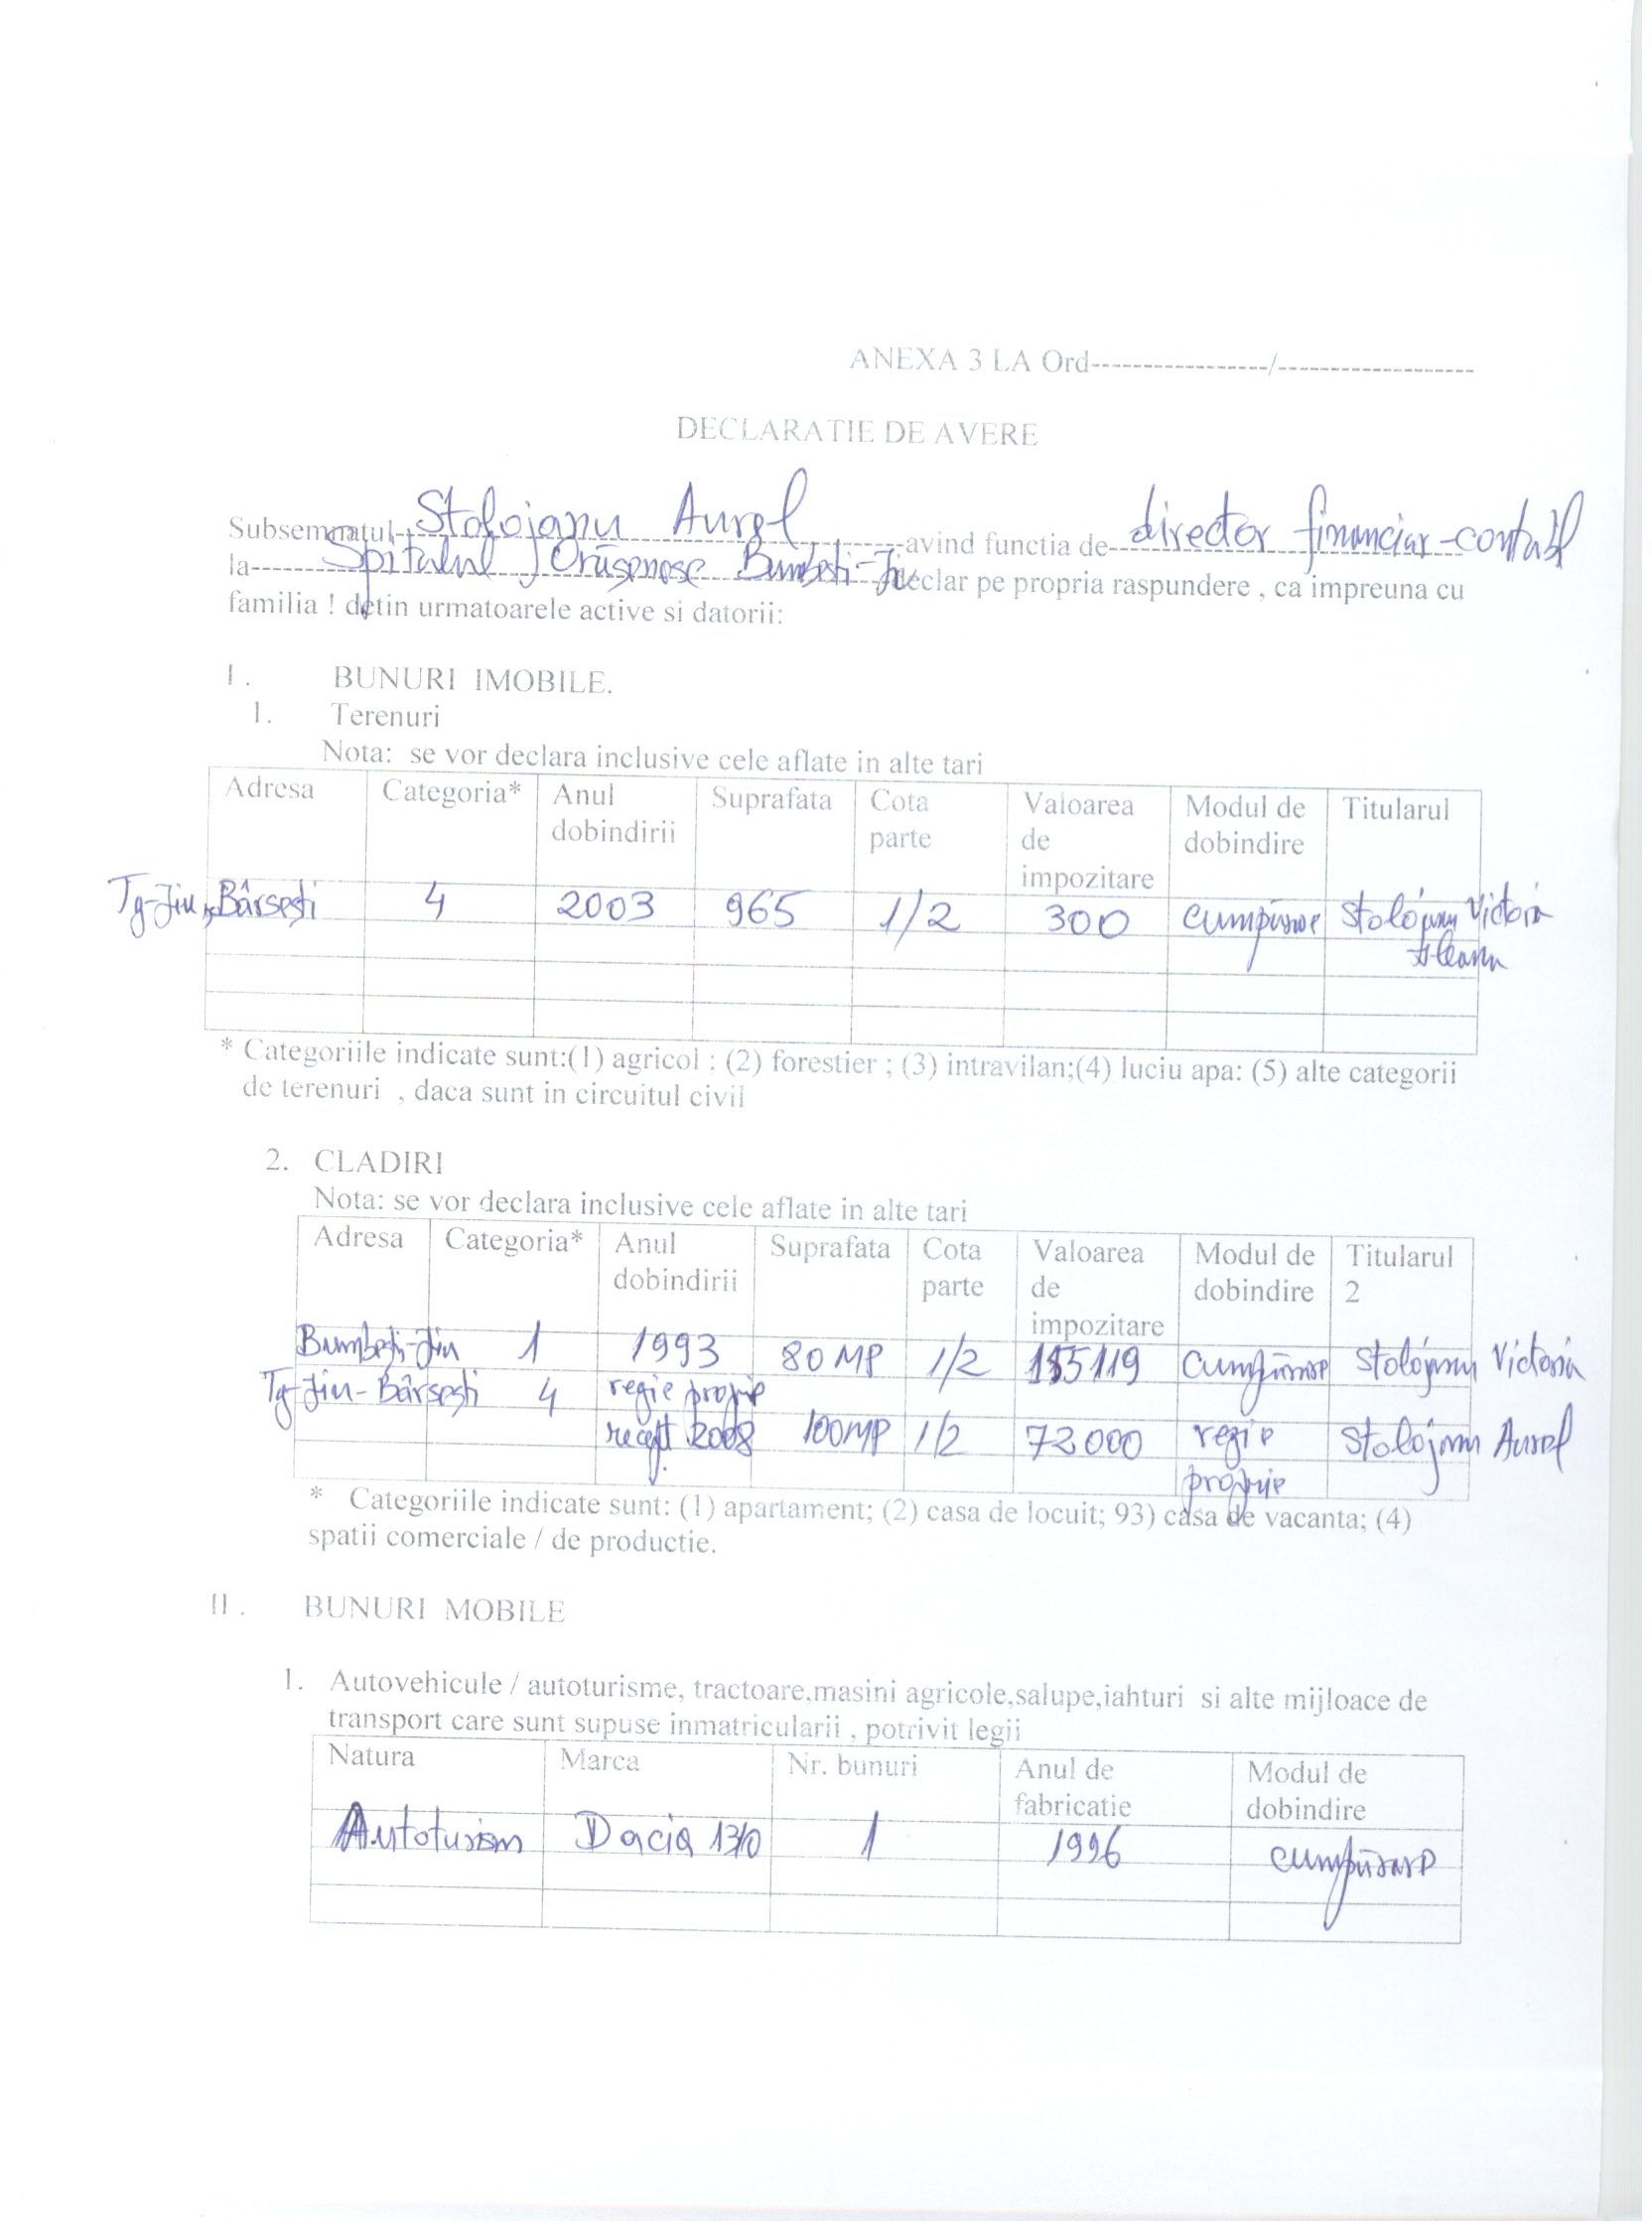 ANEXA 3 LA Ord-----------------/-------------------
DECLARATIE DE AVERE
Subsemnatul Stolojanu Aurel avind functia de director financiar-contabil
la Spitalul Orășenesc Bumbești-Jiu declar pe propria raspundere , ca impreuna cu
familia ! detin urmatoarele active si datorii:
I. BUNURI IMOBILE.
1. Terenuri
Nota: se vor declara inclusive cele aflate in alte tari
Adresa Categoria* Anul dobindirii Suprafata Cota parte Valoarea de impozitare Modul de dobindire Titularul
Tg-Jiu, Bârsești 4 2003 965 1/2 300 cumpărare Stolojanu Victoria
* Categoriile indicate sunt:(1) agricol ; (2) forestier ; (3) intravilan;(4) luciu apa: (5) alte categorii
de terenuri , daca sunt in circuitul civil
2. CLADIRI
Nota: se vor declara inclusive cele aflate in alte tari
Adresa Categoria* Anul dobindirii Suprafata Cota parte Valoarea de impozitare Modul de dobindire Titularul 2
Bumbești-Jiu 1 1993 80 MP 1/2 155119 cumpărare Stolojanu Victoria
Tg-Jiu-Bârsești 4 regie proprie
recept. 2008 100MP 1/2 72000 regie Stolojanu Aurel
proprie
* Categoriile indicate sunt: (1) apartament; (2) casa de locuit; 93) casa de vacanta; (4)
spatii comerciale / de productie.
II. BUNURI MOBILE
1. Autovehicule / autoturisme, tractoare,masini agricole,salupe,iahturi si alte mijloace de
transport care sunt supuse inmatricularii , potrivit legii
Natura Marca Nr. bunuri Anul de fabricatie Modul de dobindire
Autoturism Dacia 1310 1 1996 cumpărare